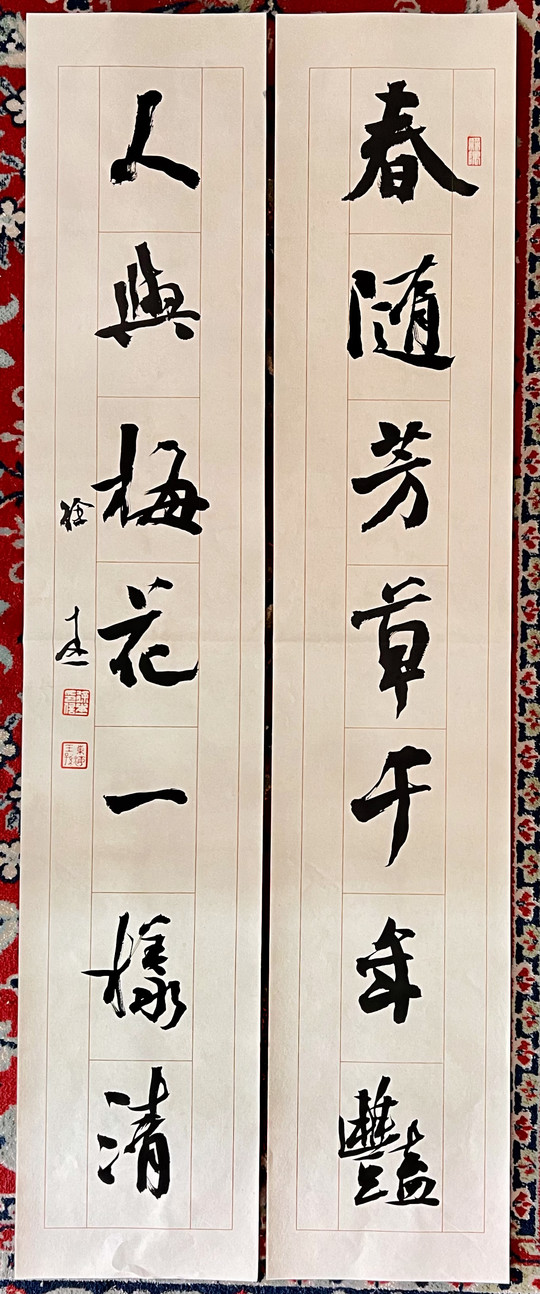 春隨芳草千年豔
人與梅花一樣清